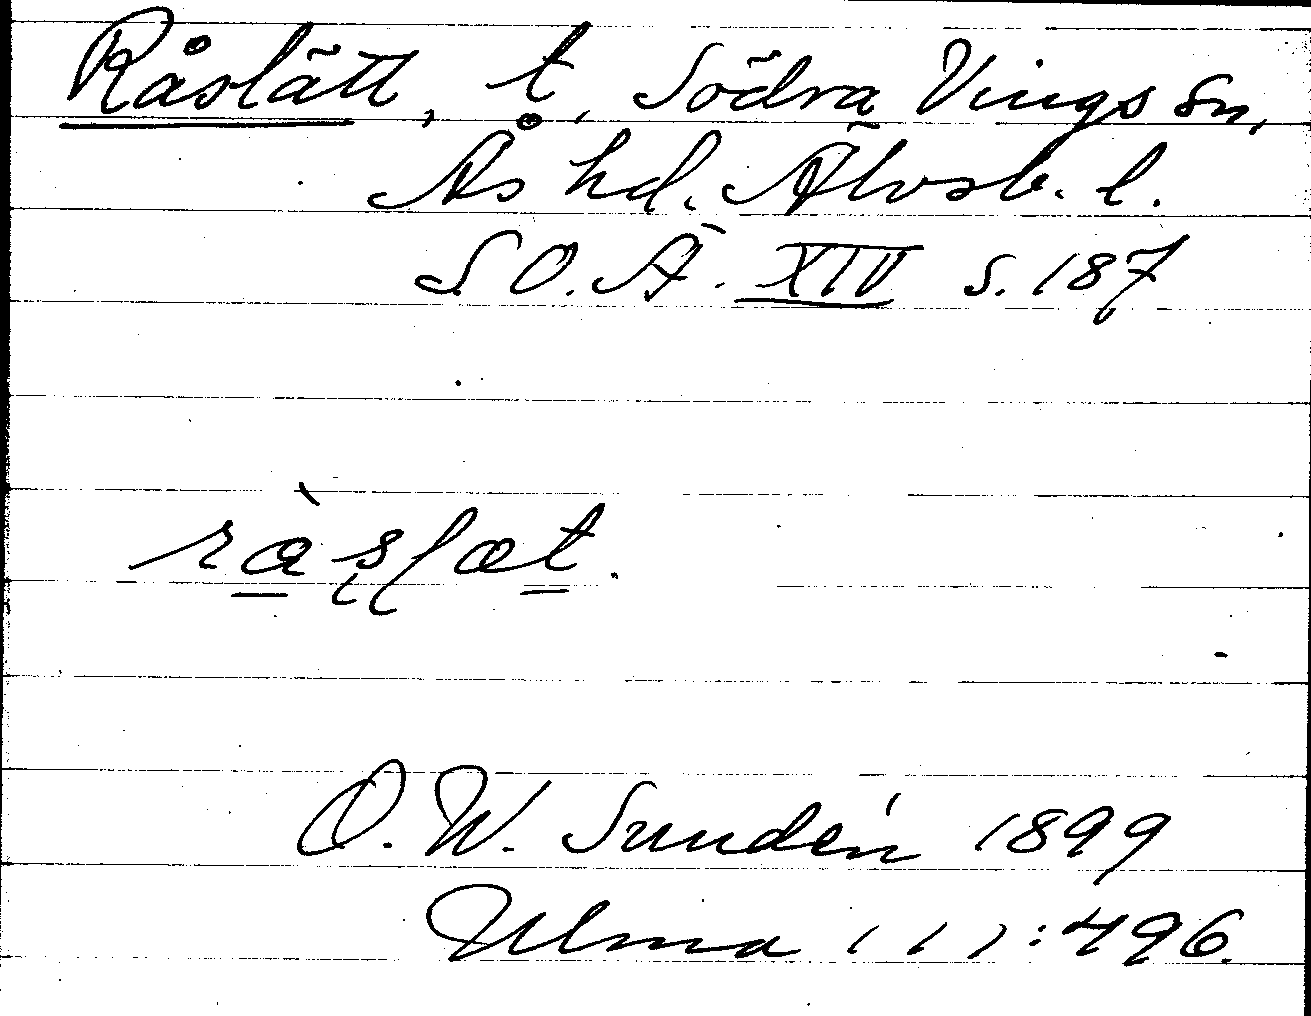 Råslätt, t, Södra Vings sn,
Ås hd. Älvsb. l.
S.O.Ä. XIV s. 187
ràslæt.
O. W. Sundén 1899
Ulma 111:496.